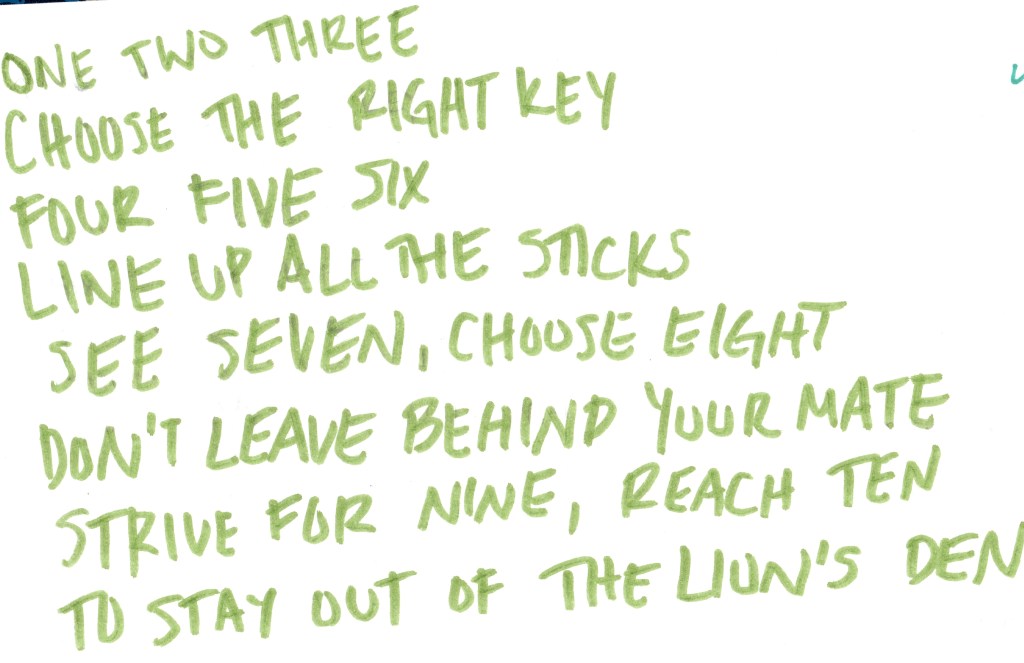 ONE TWO THREE
CHOOSE THE RIGHT KEY
FOUR FIVE SIX
LINE UP ALL THE STICKS
SEE SEVEN, CHOOSE EIGHT
DON'T LEAVE BEHIND YOUR MATE
STRIVE FOR NINE, REACH TEN
TO STAY OUT OF THE LION'S DEN